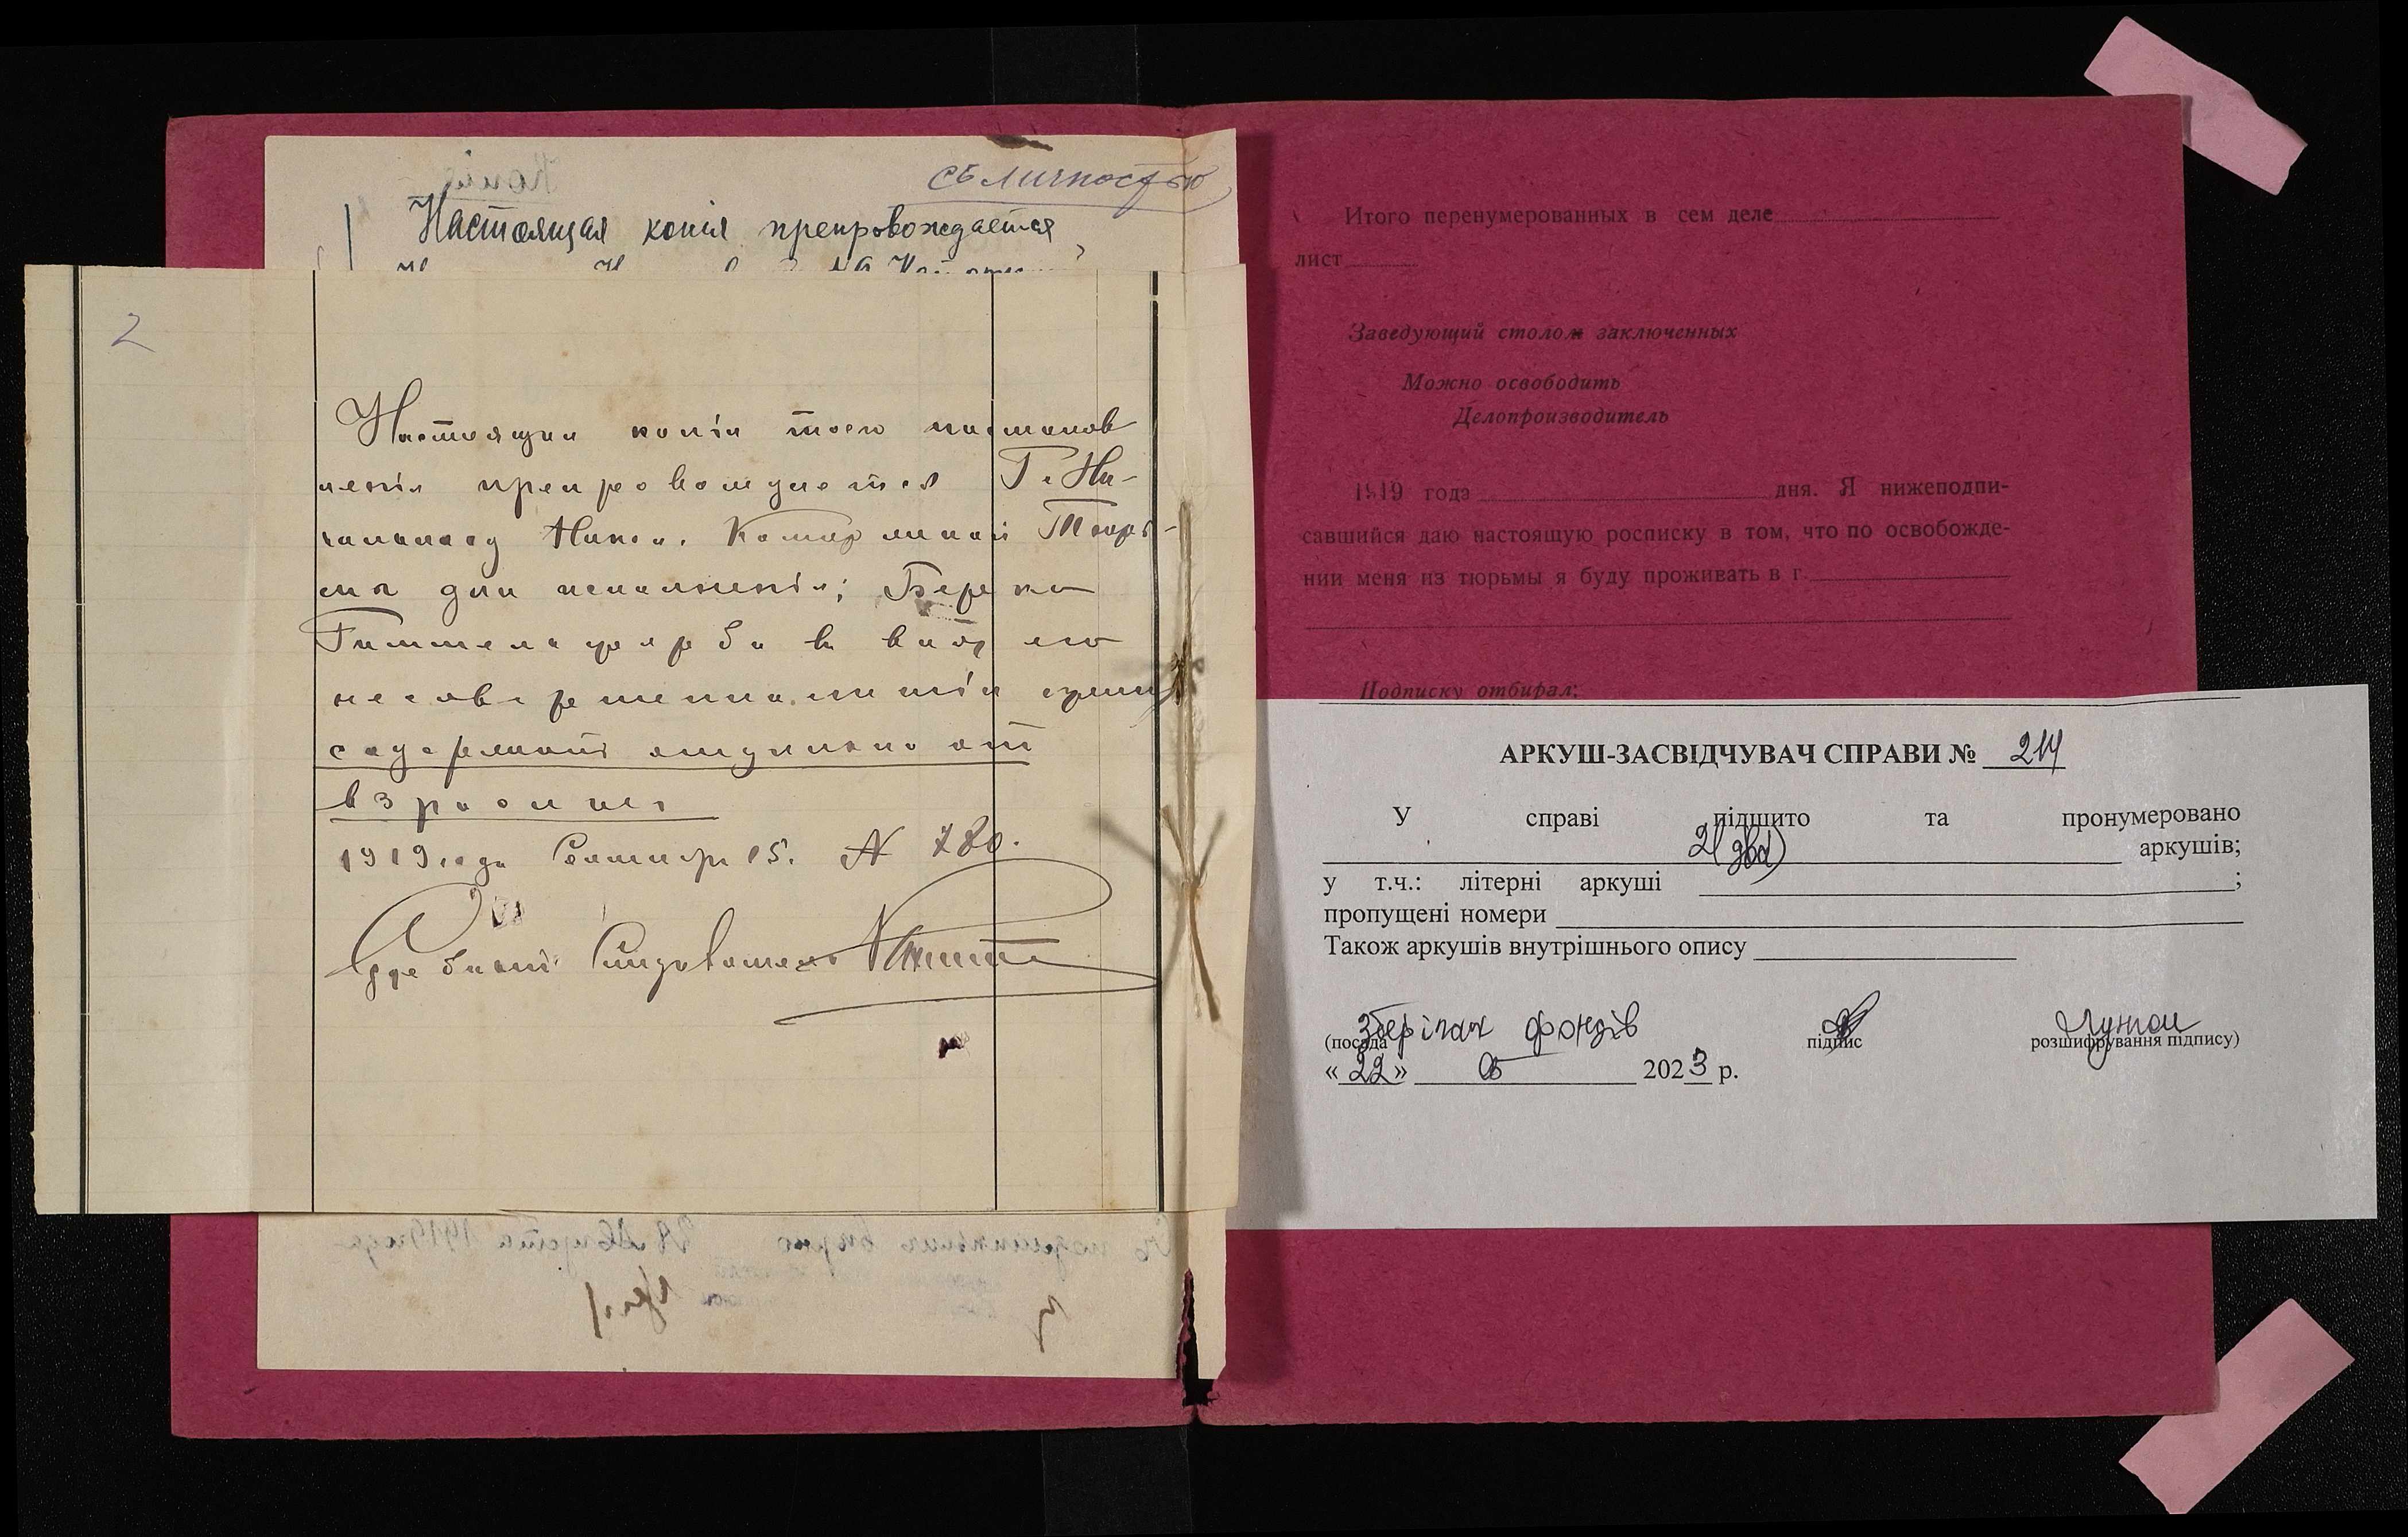 съ личностью
Настоящая копія препровождается
2
Настоящая копія моего постанов
ленія препровождается Г. На-
чальнику Никол. Каторжной Тюрь-
мы для исполненія; Берко
в виду его
несовершеннолетія
содержать отдельно от
взрослых
1919 года Сентябр 15. N 780.
Судебный Следователь
Итого перенумерованных в сем деле
лист
Заведующий столом заключенных
Можно освободить
Делопроизводитель
1919 года дня. Я нижеподпи-
савшийся даю настоящую росписку в том, что по освобожде-
нии меня из тюрьмы я буду проживать в г.
Подписку отбирал:
АРКУШ-ЗАСВІДЧУВАЧ СПРАВИ № 214
У справі підшито та пронумеровано
2 (два) аркушів;
у т.ч.: літерні аркуші ;
пропущені номери
Також аркушів внутрішнього опису
Зберігач фондів
(посада підпис розшифрування підпису)
« 22 » 2023 р.